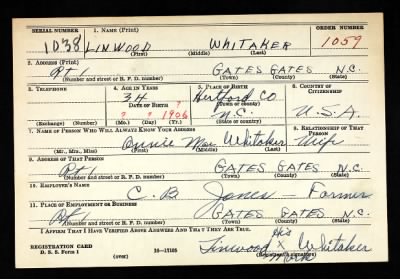 SERIAL NUMBER 1. NAME (Print) ORDER NUMBER
1038 LINWOOD WHITAKER 1059
(First) (Middle) (Last)
2. ADDRESS (Print)
Rt 1 GATES GATES N.C.
(Number and street or R. F. D. number) (Town) (County) (State)
3. TELEPHONE 4. AGE IN YEARS 5. PLACE OF BIRTH 6. COUNTRY OF CITIZENSHIP
34 Hertford Co
DATE OF BIRTH ? (Town or county)
? ? 1906 N.C. U.S.A.
(Exchange) (Number) (Mo.) (Day) (Yr.) (State or country)
7. NAME OF PERSON WHO WILL ALWAYS KNOW YOUR ADDRESS 8. RELATIONSHIP OF THAT PERSON
Annie Mae Whitaker Wife
(Mr., Mrs., Miss) (First) (Middle) (Last)
9. ADDRESS OF THAT PERSON
Rt 1 GATES GATES N.C.
(Number and street or R. F. D. number) (Town) (County) (State)
10. EMPLOYER'S NAME
C. B. Jones Farmer
11. PLACE OF EMPLOYMENT OR BUSINESS
Rt 1 GATES GATES N.C.
(Number and street or R. F. D. number) (Town) (County) (State)
I AFFIRM THAT I HAVE VERIFIED ABOVE ANSWERS AND THAT THEY ARE TRUE.
his
REGISTRATION CARD Linwood X Whitaker
D. S. S. Form 1 (over) 16—17105 Mark (Registrant's signature)